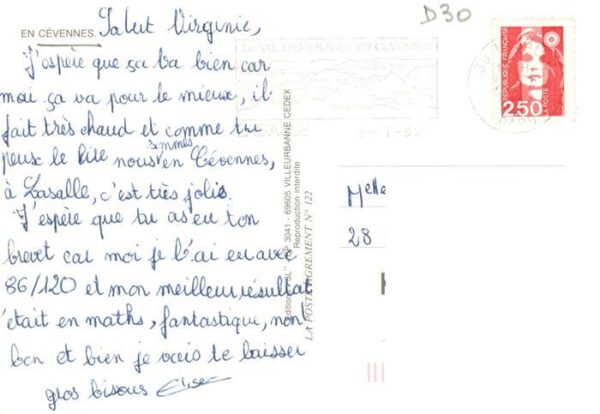 D30
EN CÉVENNES.
Salut Virginie,
J'espère que ça va bien car
moi ça va pour le mieux, il
fait très chaud et comme tu
peux le lire nous sommes en Cévennes,
à Lasalle, c'est très jolis.
J'espère que tu as eu ton
brevet car moi je l'ai eu avec
86/120 et mon meilleur résultat
était en maths, fantastique, non
bon et bien je vais te laisser
gros bisous
LE VAL D'EMERAUDE EN CEVENNES
RÉPUBLIQUE FRANÇAISE
2,50
LA POSTE
3041 - 69605 VILLEURBANNE CEDEX
Reproduction interdite
LA POSTE AGREMENT N° 122
Melle
28